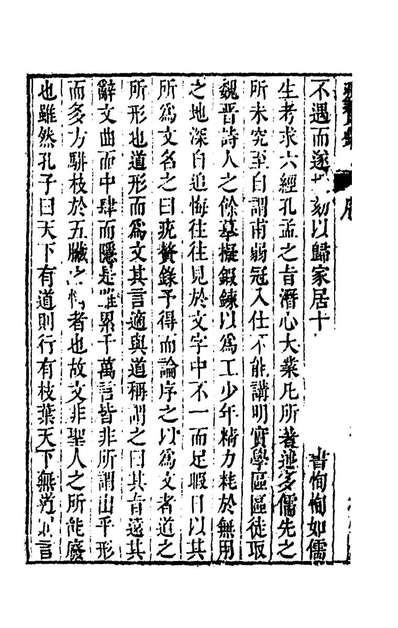 不遇而逐 刻以歸家居十 書恂恂如儒
生考求六經孔孟之旨潛心大業凡所著述多儒先之
所未究至自謂甫弱冠入仕不能講明實學區區徒取
魏晉詩人之餘摹擬鍛鍊以為工少年精力耗於無用
之地深自追悔往往見於文字中不一而足暇日以其
所為文名之曰疣贅錄予得而論序之以為文者道之
所形也道形而為文其言適與道稱謂之曰其旨遠其
辭文曲而中肆而隱是雖累千萬言皆非所謂出乎形
而多方駢枝於五臟之情者也故文非聖人之所能廢
也雖然孔子曰天下有道則行有枝葉天下無道則言